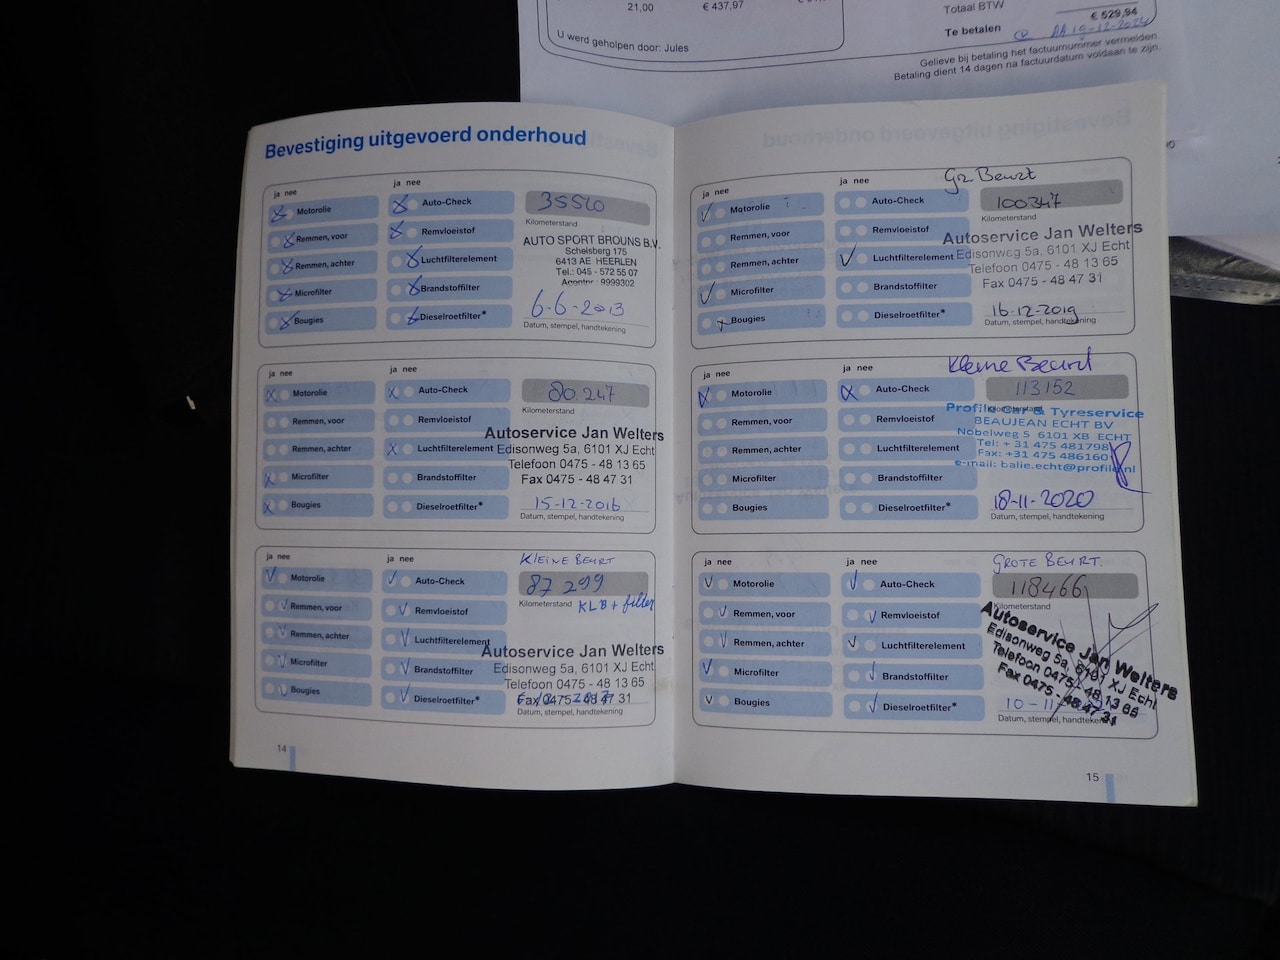 21,00 € 437,97
Totaal BTW
€ 529,94
Te betalen
19-12-2024
U werd geholpen door: Jules
Gelieve bij betaling het factuurnummer vermelden.
Betaling dient 14 dagen na factuurdatum voldaan te zijn.
Bevestiging uitgevoerd onderhoud
ja nee ja nee
Motorolie Auto-Check
Remmen, voor Remvloeistof
Remmen, achter Luchtfilterelement
Microfilter Brandstoffilter
Bougies Dieselroetfilter*
35520
Kilometerstand
AUTO SPORT BROUNS B.V.
Schelsberg 175
6413 AE HEERLEN
Tel.: 045 - 572 55 07
Agentnr.: 9999302
6-6-2013
Datum, stempel, handtekening
ja nee ja nee
Motorolie Auto-Check
Remmen, voor Remvloeistof
Remmen, achter Luchtfilterelement
Microfilter Brandstoffilter
Bougies Dieselroetfilter*
80.247
Kilometerstand
Autoservice Jan Welters
Edisonweg 5a, 6101 XJ Echt
Telefoon 0475 - 48 13 65
Fax 0475 - 48 47 31
15-12-2016
Datum, stempel, handtekening
ja nee ja nee
Motorolie Auto-Check
Remmen, voor Remvloeistof
Remmen, achter Luchtfilterelement
Microfilter Brandstoffilter
Bougies Dieselroetfilter*
KLEINE BEURT
87 299
Kilometerstand KLB + filter
Autoservice Jan Welters
Edisonweg 5a, 6101 XJ Echt
Telefoon 0475 - 48 13 65
Fax 0475 - 48 47 31
Datum, stempel, handtekening
14
Gr. Beurt
ja nee ja nee
Motorolie Auto-Check
Remmen, voor Remvloeistof
Remmen, achter Luchtfilterelement
Microfilter Brandstoffilter
Bougies Dieselroetfilter*
100347
Kilometerstand
Autoservice Jan Welters
Edisonweg 5a, 6101 XJ Echt
Telefoon 0475 - 48 13 65
Fax 0475 - 48 47 31
16-12-2019
Datum, stempel, handtekening
Kleine Beurt
ja nee ja nee
Motorolie Auto-Check
Remmen, voor Remvloeistof
Remmen, achter Luchtfilterelement
Microfilter Brandstoffilter
Bougies Dieselroetfilter*
113152
Kilometerstand
Profile Car & Tyreservice
BEAUJEAN ECHT BV
Nobelweg 5 6101 XB ECHT
Tel: + 31 475 481798
Fax: +31 475 486160
e-mail: balie.echt@profile.nl
18-11-2020
Datum, stempel, handtekening
GROTE BEURT.
ja nee ja nee
Motorolie Auto-Check
Remmen, voor Remvloeistof
Remmen, achter Luchtfilterelement
Microfilter Brandstoffilter
Bougies Dieselroetfilter*
118466
Kilometerstand
Autoservice Jan Welters
Edisonweg 5a, 6101 XJ Echt
Telefoon 0475 - 48 13 65
Fax 0475 - 48 47 31
10-11-
Datum, stempel, handtekening
15